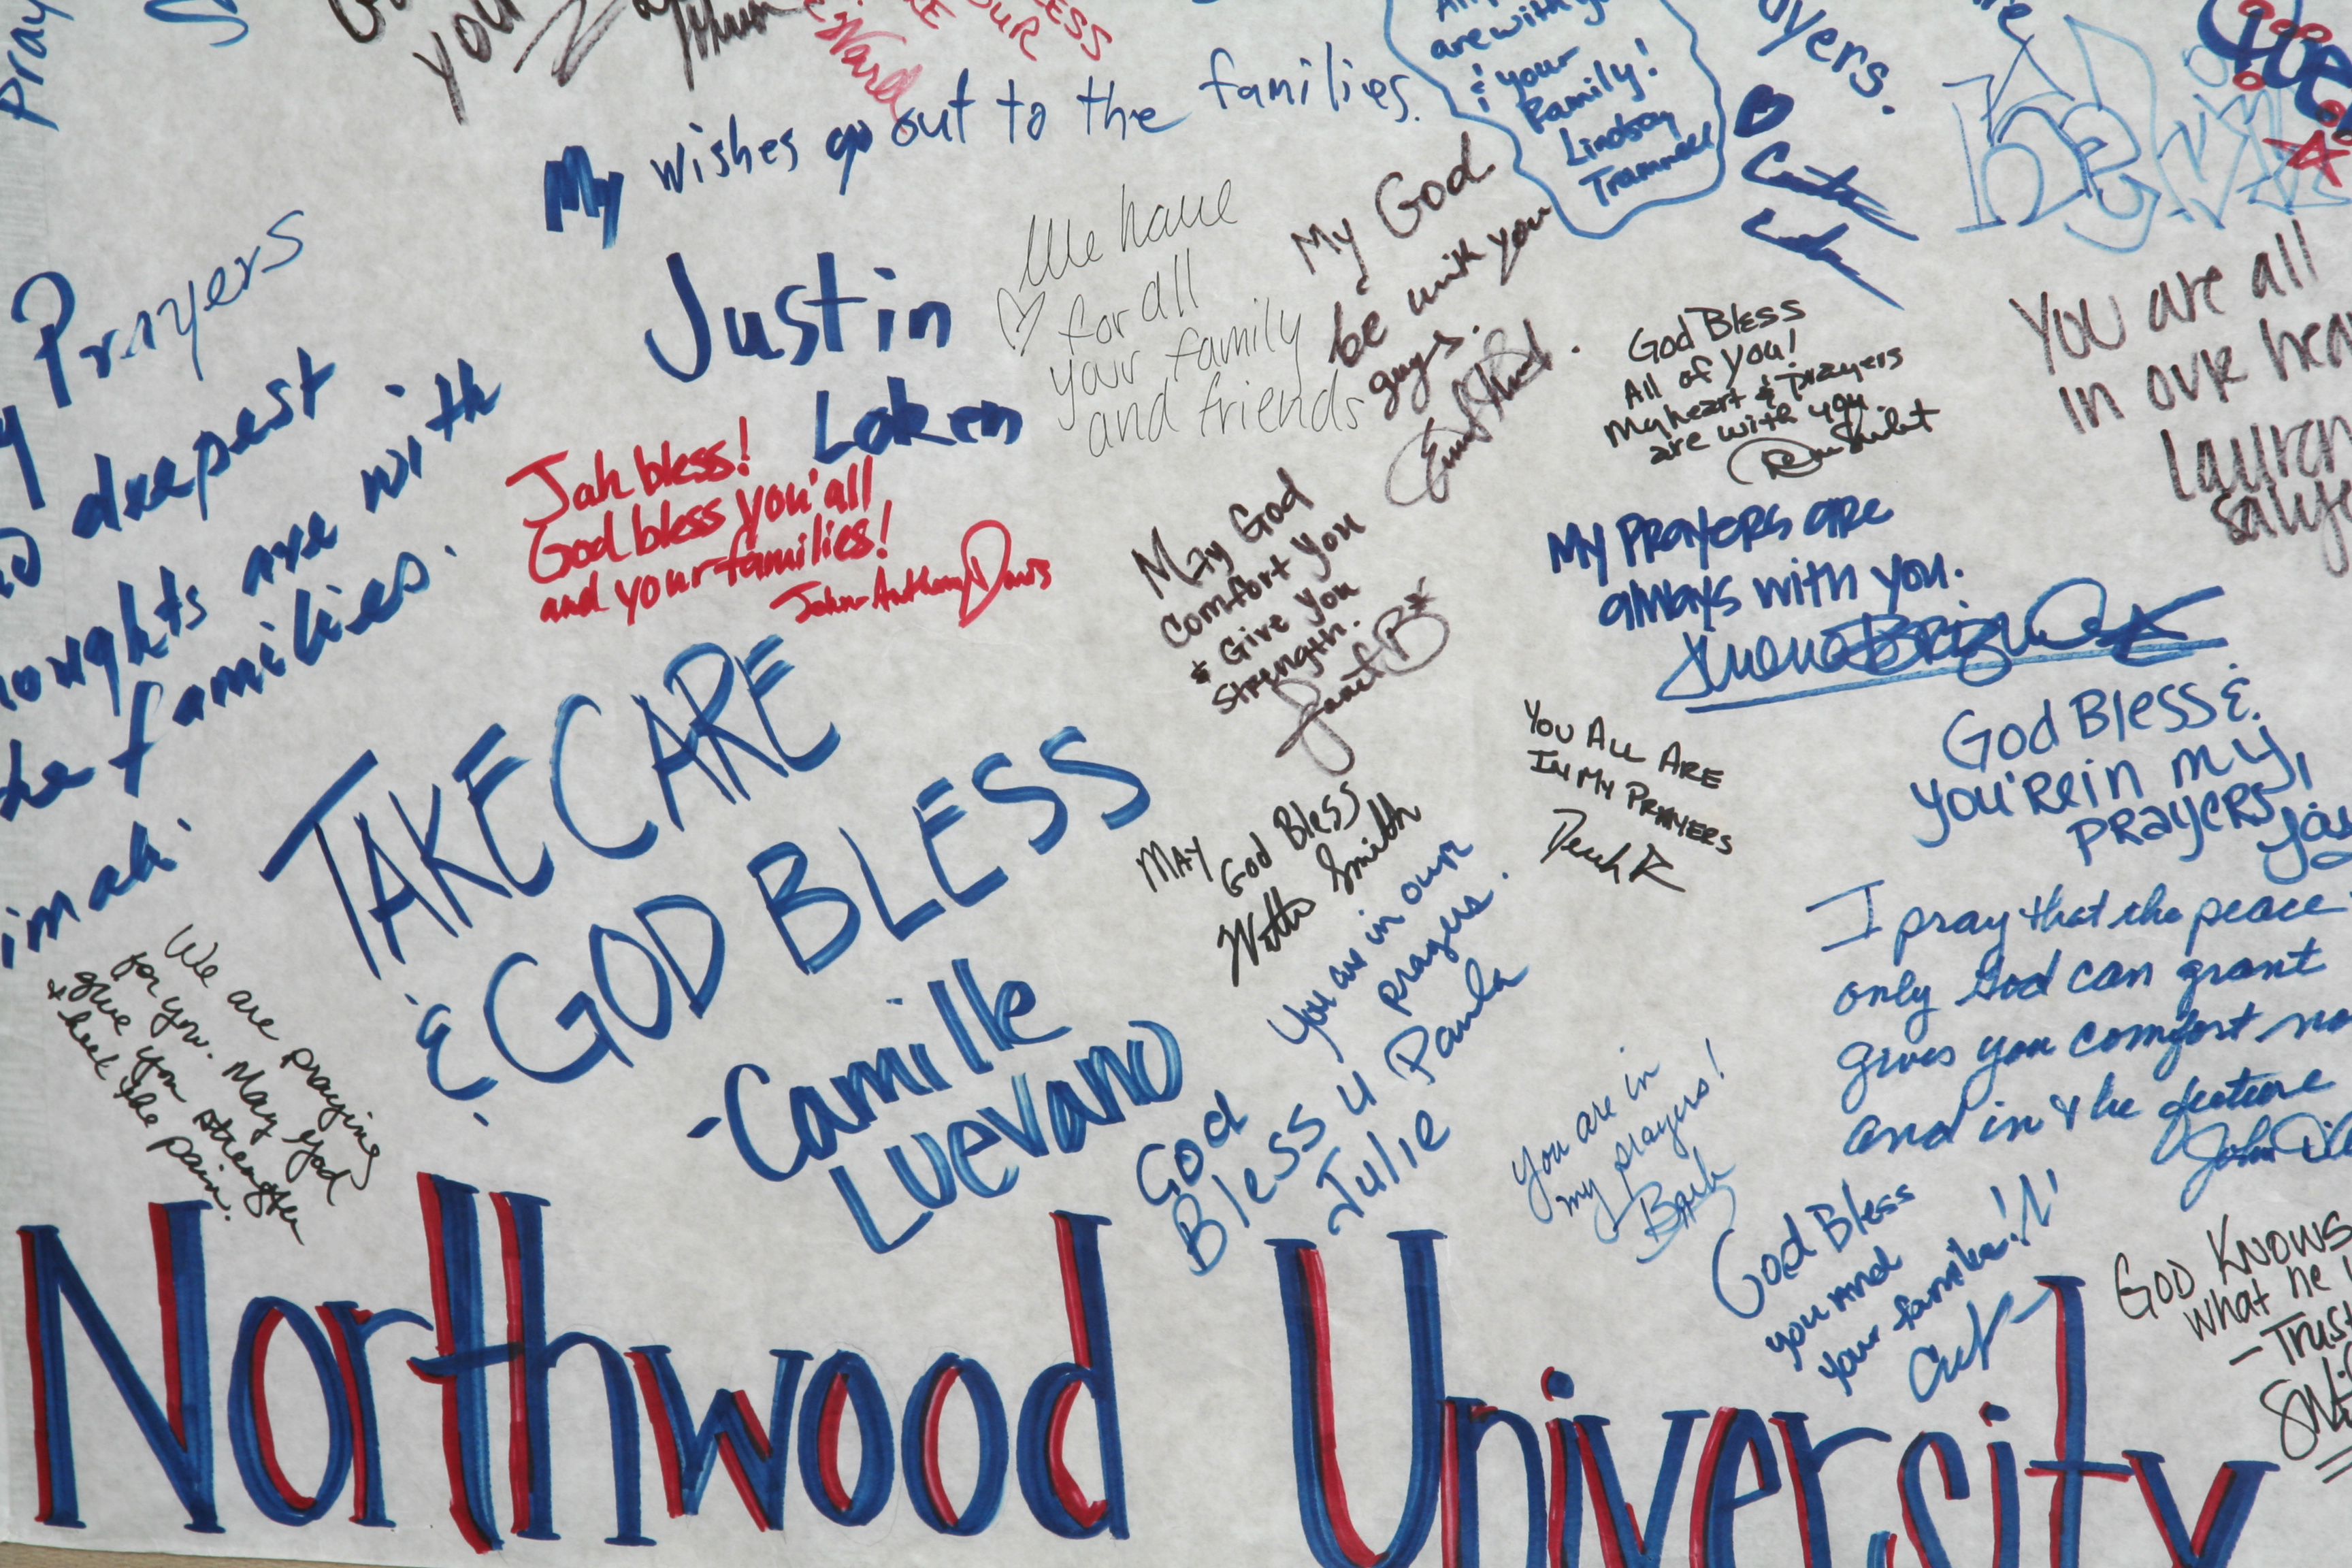 Pray
you
LESS
are with you
& your
Family!
Lindsay
Trammell
My wishes go out to the families.
Justin
Loken
Prayers
deepest
are with
families.
We have
♡ for all
your family
and friends
My God
be with you
guys.
God Bless
All of you!
My heart & prayers
are with you.
You are all
in our
Lauren
Jah bless!
God bless you' all
and your families!
John-Anthony Davis
May God
Comfort you
+ Give you
Strength.
Janet B
My Prayers are
always with you.
TAKE CARE
& GOD BLESS
-Camille
Luevano
You All Are
In My Prayers
Derek R
God Bless &
you're in my
prayers,
May
God Bless
Smith
You are in our
prayers.
Paula
God
Bless U
Julie
We are praying
for you. May God
give you strength
+ heal the pain.
I pray that the peace
only God can grant
gives you comfort
and in the future
John
You are in
my prayers!
Barb
God Bless
you and
your families!!!
God Knows
what he
-Trust
Northwood University